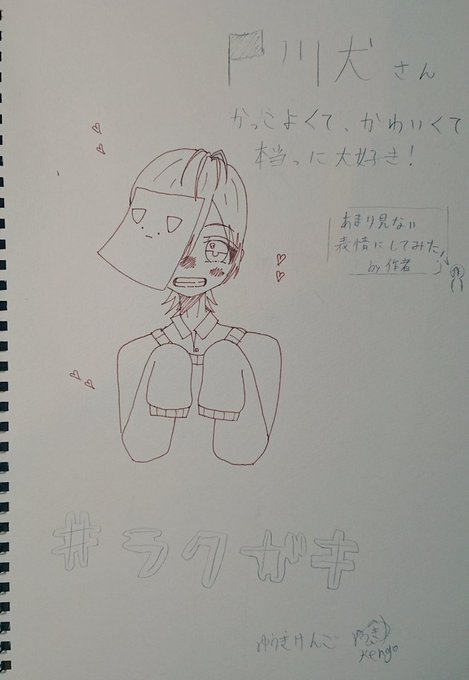 戸川犬さん
かっこよくて、かわいくて
本当っに大好き!
あまり見ない
表情にしてみた♪
by 作者
#ラクガキ
ゆうきけんご
Kengo